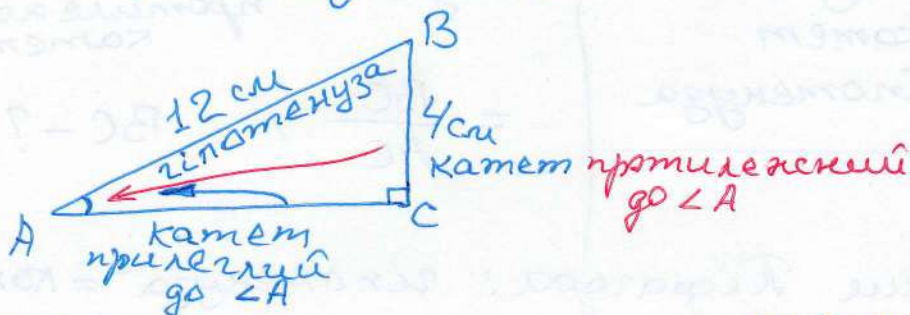 B
12 см
гіпотенуза
4 см
катет протилежний
до ∠A
A
C
катет
прилеглий
до ∠A